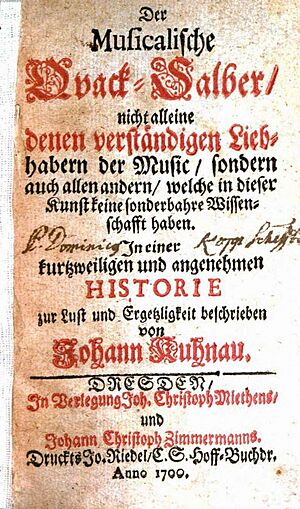 Der
Musicalische
Qvack-Salber/
nicht alleine
denen verständigen Lieb-
habern der Music/ sondern
auch allen andern/ welche in dieser
Kunst keine sonderbahre Wissen-
schafft haben.
In einer
kurtzweiligen und angenehmen
HISTORIE
zur Lust und Ergetzligkeit beschrieben
von
Johann Kuhnau.
DRESDEN/
In Verlegung Joh. Christoph Miethens/
und
Johann Christoph Zimmermanns.
Druckts Jo. Riedel/ C. S. Hoff-Buchdr.
Anno 1700.